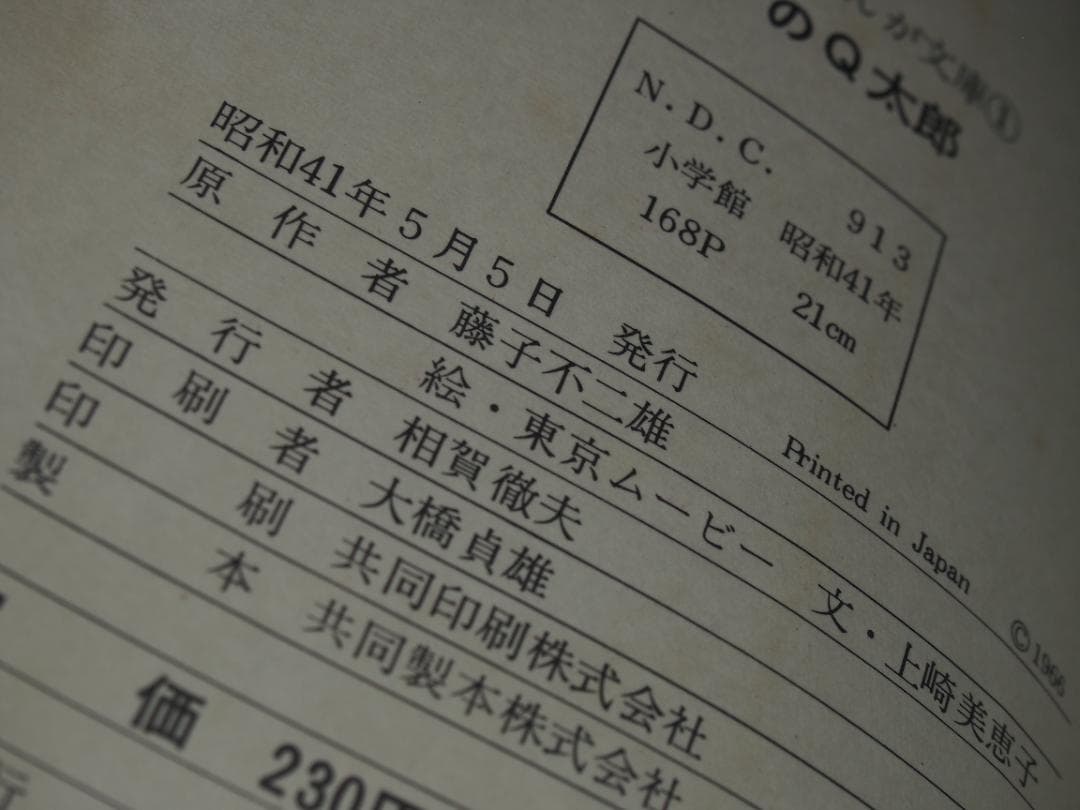 んが文庫①
のQ太郎
N.D.C. 913
小学館 昭和41年
168P 21cm
昭和41年5月5日 発行
Printed in Japan
©1966
原作者 藤子不二雄
絵・東京ムービー 文・上崎美恵子
発行者 相賀徹夫
印刷者 大橋貞雄
印刷 共同印刷株式会社
製本 共同製本株式会社
価 230円
行